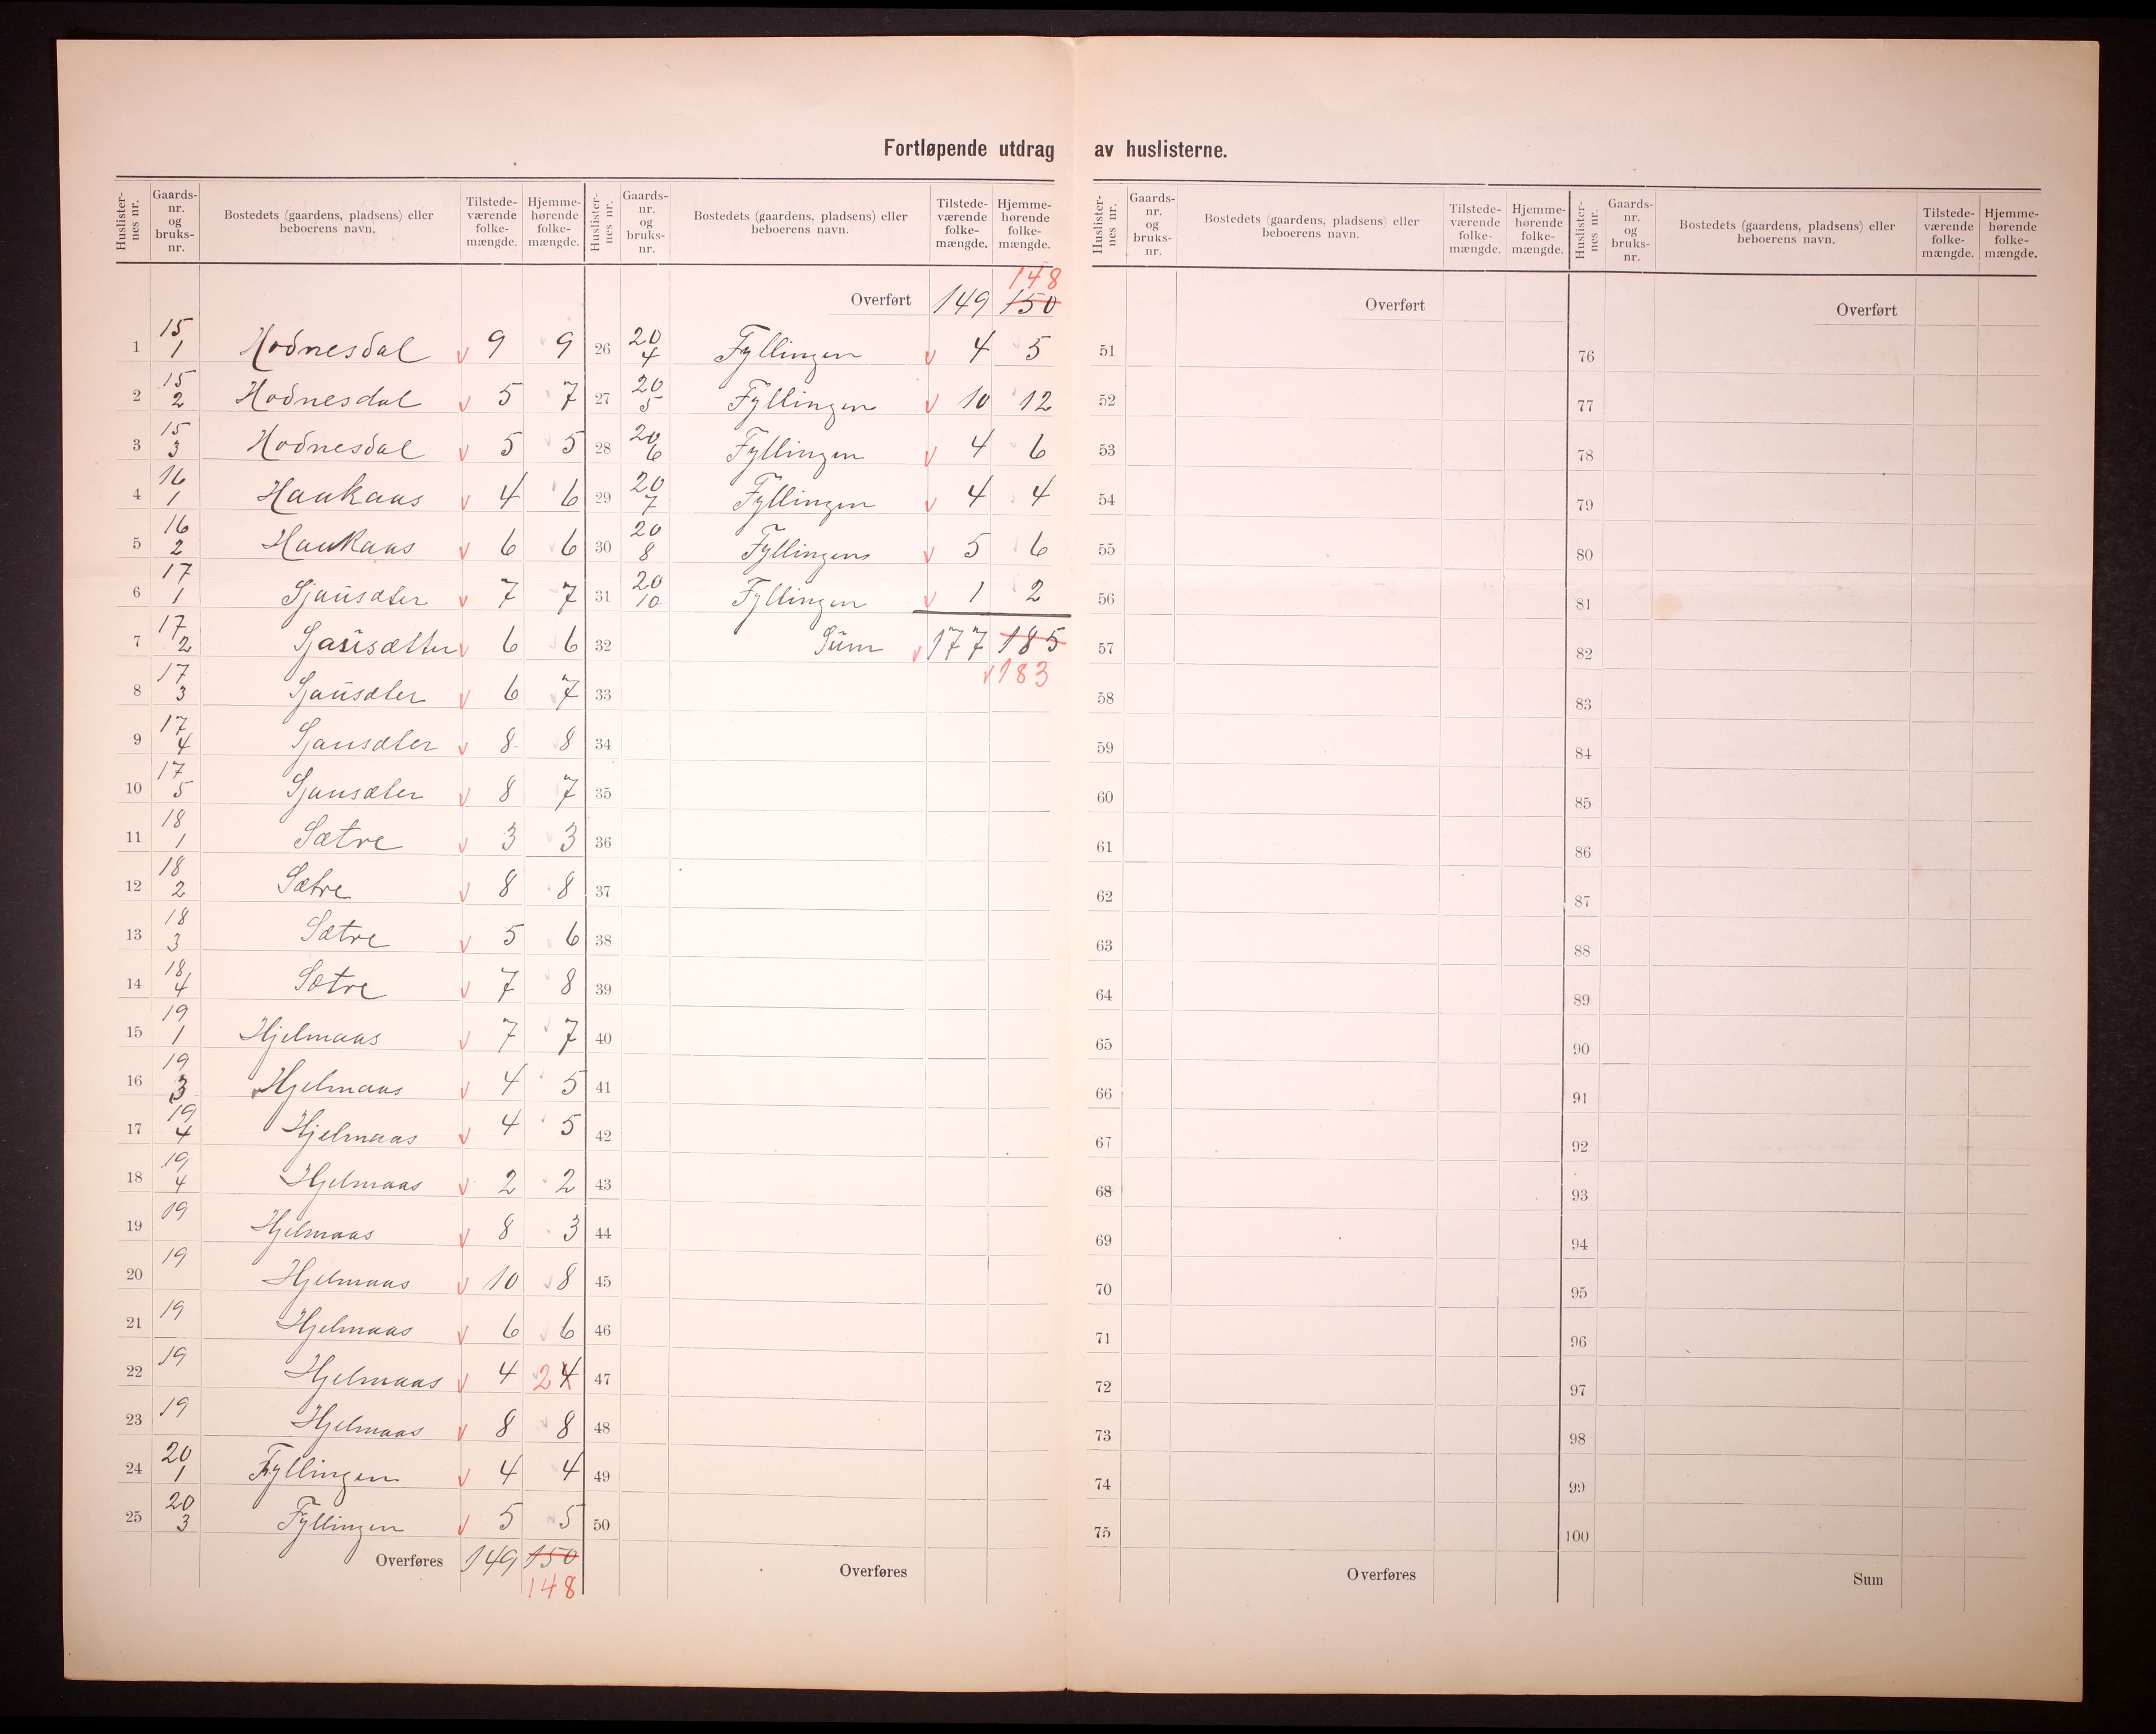 Fortløpende utdrag av huslisterne.
Huslister-nes nr. Gaards-nr. og bruks-nr. Bostedets (gaardens, pladsens) eller beboerens navn. Tilstede-værende folke-mængde. Hjemme-hørende folke-mængde.
1 15/1 Hodnesdal v 9 9
2 15/2 Hodnesdal v 5 7
3 15/3 Hodnesdal v 5 5
4 16/1 Haukaas v 4 6
5 16/2 Haukaas v 6 6
6 17/1 Sjausæter v 7 7
7 17/2 Sjausætter v 6 6
8 17/3 Sjausæter v 6 7
9 17/4 Sjausæter v 8 8
10 17/5 Sjausæter v 8 7
11 18/1 Sætre v 3 3
12 18/2 Sætre v 8 8
13 18/3 Sætre v 5 6
14 18/4 Sætre v 7 8
15 19/1 Hjelmaas v 7 7
16 19/3 Hjelmaas v 4 5
17 19/4 Hjelmaas v 4 5
18 19/4 Hjelmaas v 2 2
19 19 Hjelmaas v 8 3
20 19 Hjelmaas v 10 8
21 19 Hjelmaas v 6 6
22 19 Hjelmaas v 4 2 4
23 19 Hjelmaas v 8 8
24 20/1 Fyllingen v 4 4
25 20/3 Fyllingen v 5 5
Overføres 149 150
148
Huslister-nes nr. Gaards-nr. og bruks-nr. Bostedets (gaardens, pladsens) eller beboerens navn. Tilstede-værende folke-mængde. Hjemme-hørende folke-mængde.
148
Overført 149 150
26 20/4 Fyllingen v 4 5
27 20/5 Fyllingen v 10 12
28 20/6 Fyllingen v 4 6
29 20/7 Fyllingen v 4 4
30 20/8 Fyllingens v 5 6
31 20/10 Fyllingen v 1 2
32 Sum v 177 185
33 v 183
34
35
36
37
38
39
40
41
42
43
44
45
46
47
48
49
50
Overføres
Huslister-nes nr. Gaards-nr. og bruks-nr. Bostedets (gaardens, pladsens) eller beboerens navn. Tilstede-værende folke-mængde. Hjemme-hørende folke-mængde.
Overført
51
52
53
54
55
56
57
58
59
60
61
62
63
64
65
66
67
68
69
70
71
72
73
74
75
Overføres
Huslister-nes nr. Gaards-nr. og bruks-nr. Bostedets (gaardens, pladsens) eller beboerens navn. Tilstede-værende folke-mængde. Hjemme-hørende folke-mængde.
Overført
76
77
78
79
80
81
82
83
84
85
86
87
88
89
90
91
92
93
94
95
96
97
98
99
100
Sum